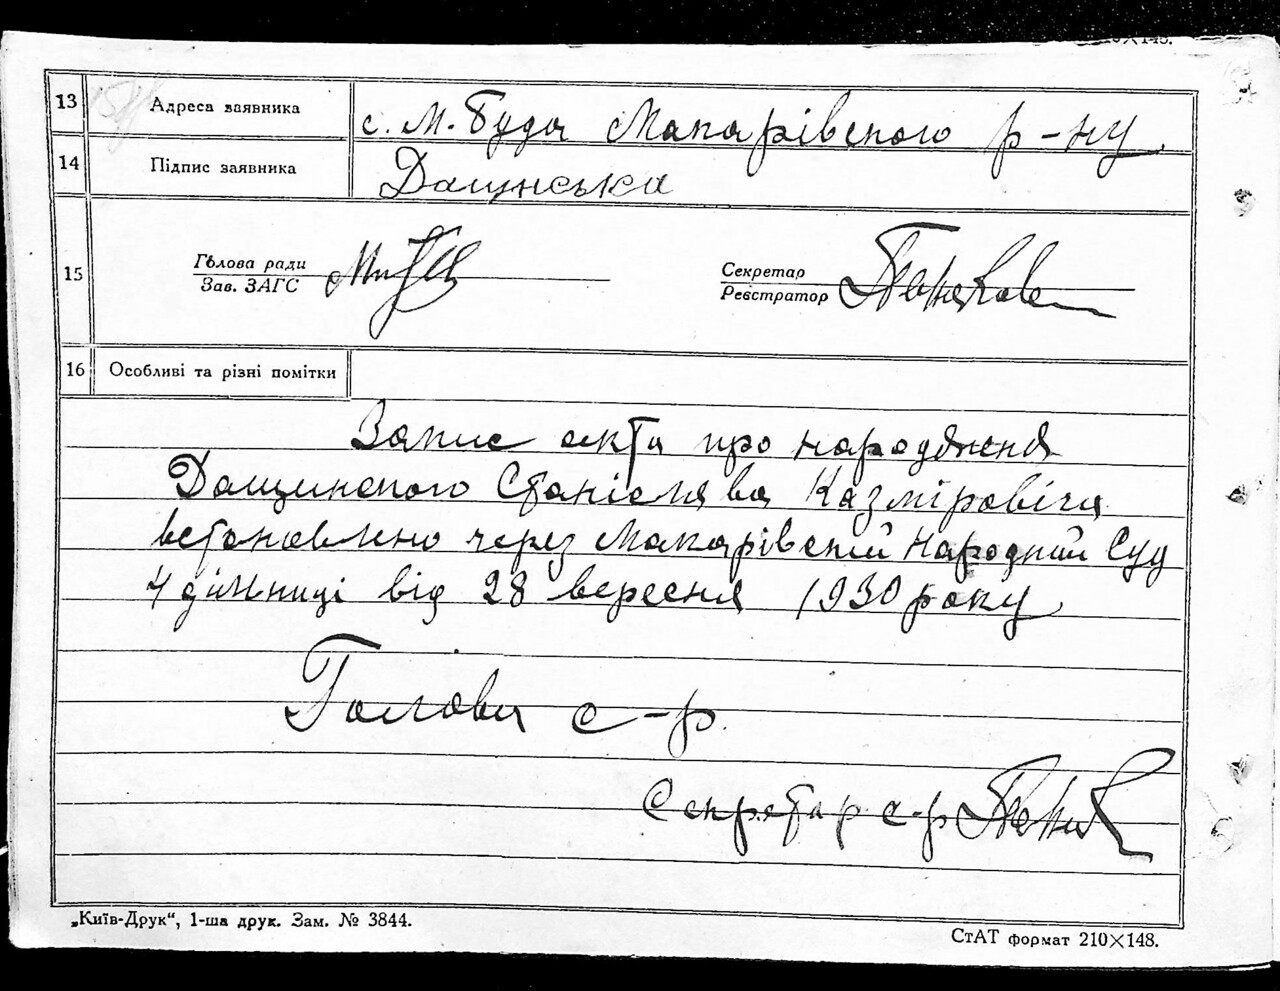 13 Адреса заявника с. М-Буда Макарівского р-ну
14 Підпис заявника Дащнська
15 Голова ради
Зав. ЗАГС
Секретар
Реєстратор
16 Особливі та різні помітки
Запис акта про народженя
Дащинского Станіслава Казміровіча
встановлено через Макарівский Народний Суд
4 дільниці від 28 вересня 1930 року
Голова с-р.
Секретар с-р
„Київ-Друк“, 1-ша друк. Зам. № 3844.
СтАТ формат 210×148.